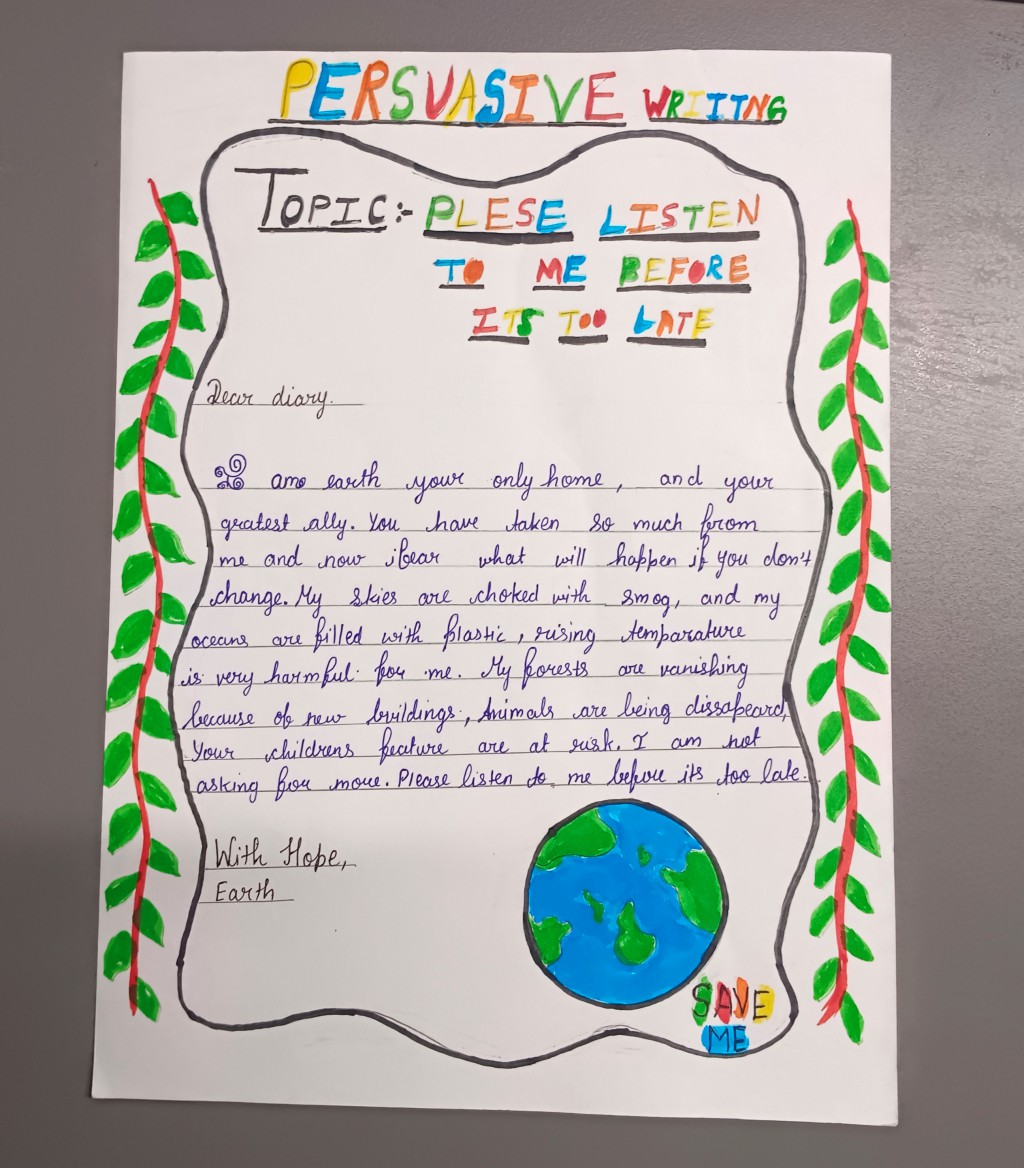 PERSUASIVE WRIITNG
TOPIC:- PLESE LISTEN
TO ME BEFORE
ITS TOO LATE
Dear diary.
I am earth your only home, and your
greatest ally. You have taken so much from
me and now ifear what will happen if you don't
change. My skies are choked with smog, and my
oceans are filled with plastic, rising temparature
is very harmful for me. My forests are vanishing
because of new buildings, Animals are being dissapeard,
Your childrens feature are at risk. I am not
asking for more. Please listen to me before its too late.
With Hope,
Earth
SAVE
ME